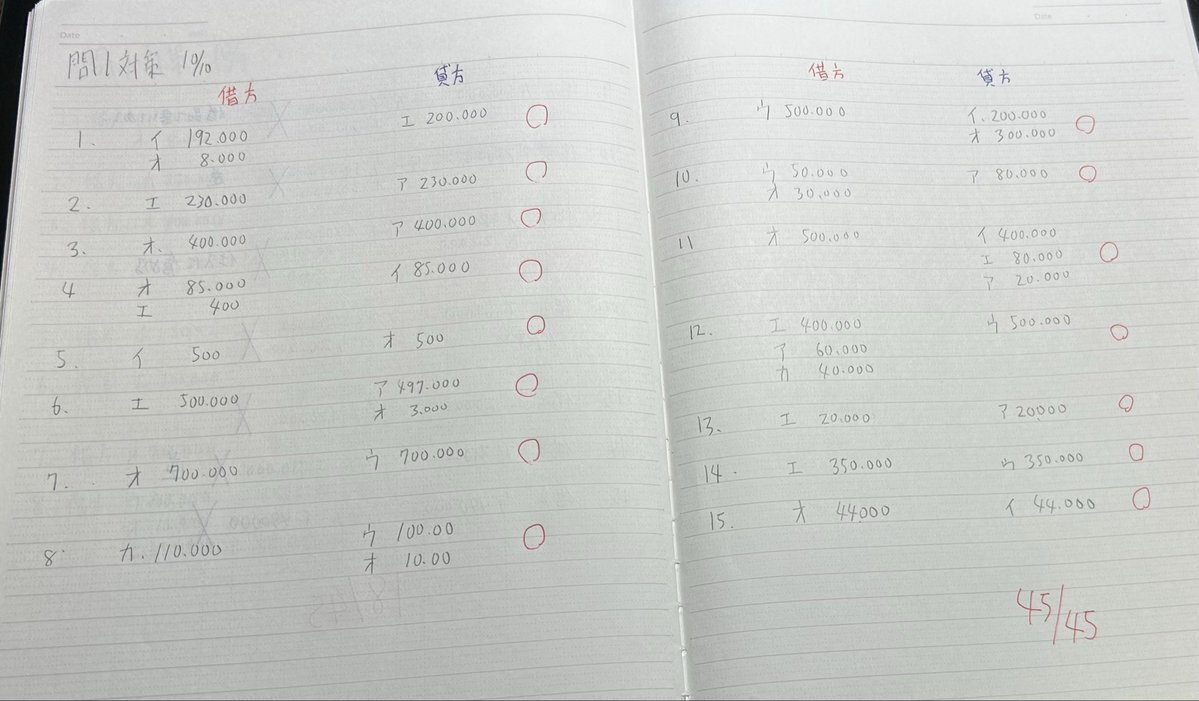 Date
問1対策 10/10
借方 貸方
1. イ 192.000 エ 200.000
オ 8.000
2. エ 230.000 ア 230.000
3. オ. 400.000 ア 400.000
4 オ 85.000 イ 85.000
エ 400
5. イ 500 オ 500
6. エ 500.000 ア 497.000
オ 3.000
7. オ 700.000 ウ 700.000
8. カ. 110.000 ウ 100.00
オ 10.00
Date
借方 貸方
9. ウ 500.000 イ. 200.000
オ 300.000
10. ウ 50.000 ア 80.000
オ 30.000
11 オ 500.000 イ 400.000
エ 80.000
ア 20.000
12. エ 400.000 ウ 500.000
ア 60.000
カ 40.000
13. エ 20.000 ア 20000
14. エ 350.000 ウ 350.000
15. オ 44000 イ 44.000
45/45